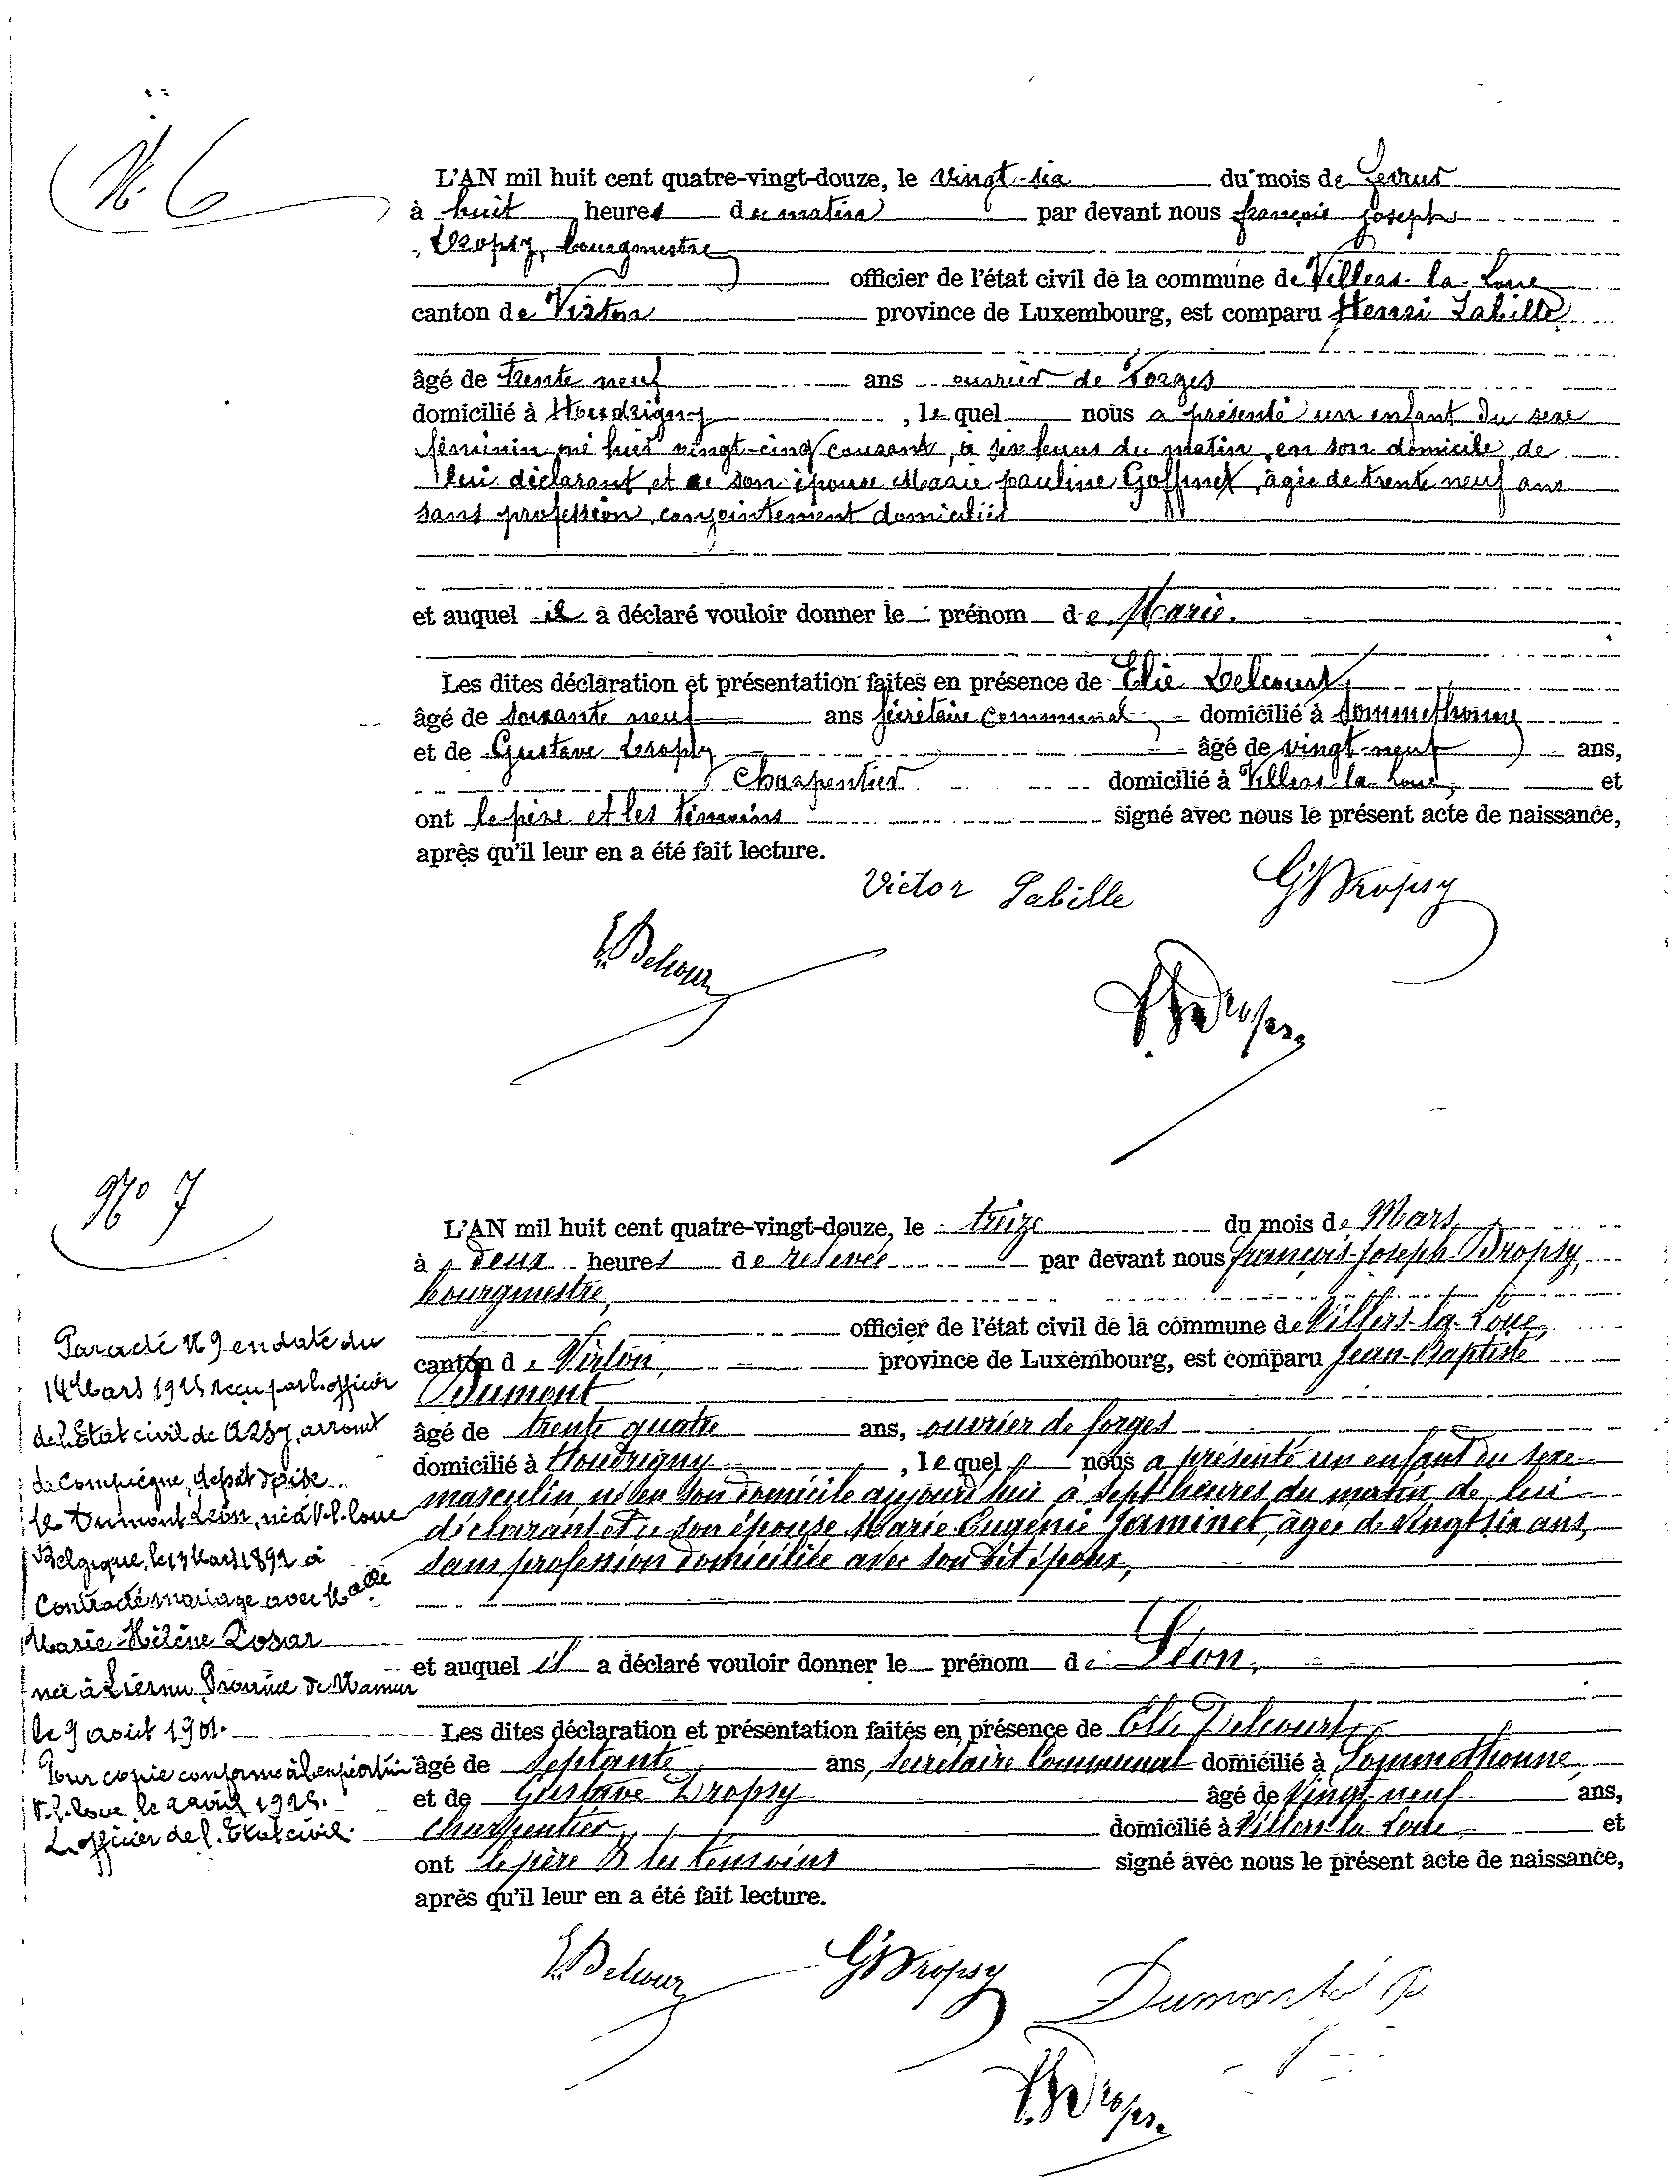 N. 6
L'AN mil huit cent quatre-vingt-douze, le vingt-six du mois de
à huit heures du matin par devant nous françois joseph
Dropsy, bourgmestre
officier de l'état civil de la commune de Villers-la-Loue
canton de Virton province de Luxembourg, est comparu Henri Labille
âgé de trente neuf ans ouvrier de forges
domicilié à Houdrigny, lequel nous a présenté un enfant du sexe
féminin né hier vingt-cinq courant, à six heures du matin, en son domicile, de
lui déclarant, et de son épouse Marie pauline Goffinet, âgée de trente neuf ans
sans profession, conjointement domiciliés
et auquel il a déclaré vouloir donner le prénom de Marie.
Les dites déclaration et présentation faites en présence de Elie Delcourt,
âgé de soixante neuf ans sécrétaire communal domicilié à Sommethonne
et de Gustave Dropsy âgé de vingt-neuf ans,
Charpentier domicilié à Villers-la-Loue, et
ont le père et les témoins signé avec nous le présent acte de naissance,
après qu'il leur en a été fait lecture.
Victor Labille G Dropsy
E. Delcour
Dropsy
N° 7
L'AN mil huit cent quatre-vingt-douze, le treize du mois de Mars,
à deux heures de relevée par devant nous françois-joseph Dropsy,
bourgmestre,
officier de l'état civil de la commune de Villers-la-Loue,
canton de Virton, province de Luxembourg, est comparu Jean-Baptiste
Dumont
âgé de trente quatre ans, ouvrier de forges
domicilié à Houdrigny, lequel nous a présenté un enfant du sexe
masculin né en son domicile aujourd'hui à sept heures du matin de lui
déclarant et de son épouse Marie Eugénie Jaminet, âgée de vingt six ans,
sans profession domiciliée avec son dit époux,
et auquel il a déclaré vouloir donner le prénom de Léon,
Les dites déclaration et présentation faites en présence de Elie Delcourt,
âgé de septante ans, secrétaire Communal domicilié à Sommethonne,
et de Gustave Dropsy âgé de vingt-neuf ans,
charpentier domicilié à Villers-la-Loue et
ont le père & les témoins signé avec nous le présent acte de naissance,
après qu'il leur en a été fait lecture.
Par acte N 9 en date du
14 Mars 1925 reçu par l'officier
de l'Etat civil de Arsy, arromt
de Compiègne, dépet d'Oise
le Dumont Léon, né à V.-l.-loue
Belgique, le 13 Mars 1892 a
Contracté mariage avec Melle
Marie-Hélène Losar
née à Liernu Province de Namur
le 9 août 1901.
Pour copie conforme à l'expédition
V.-l.-loue le 2 avril 1925.
L'officier de l'Etat civil.
E. Delcour G Dropsy Dumont
Dropsy